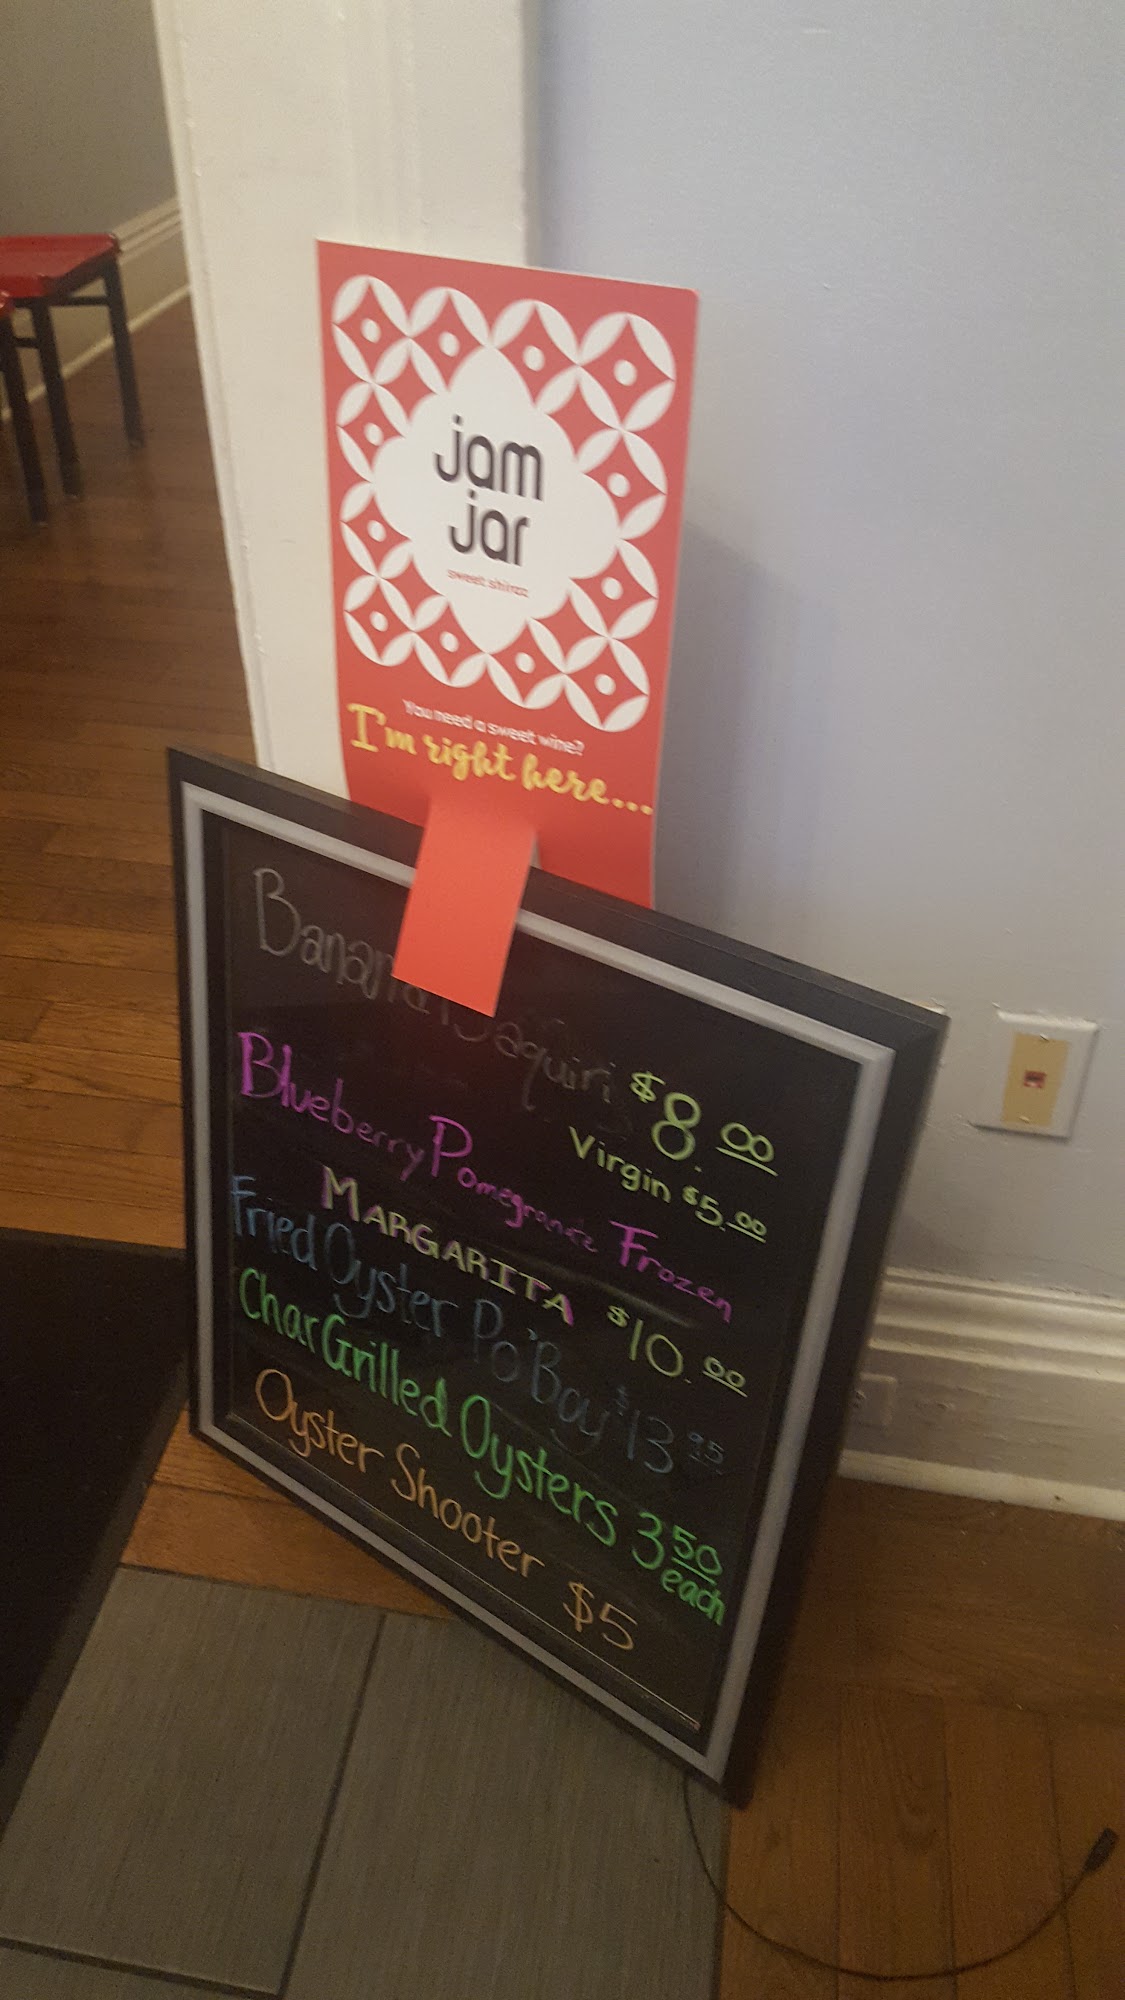 jam
jar
sweet shiraz
You need a sweet wine?
I'm right here...
Banana Daquiri $8.00
Virgin $5.00
Blueberry Pomegranate Frozen
MARGARITA $10.00
Fried Oyster Po'Boy $13.95
Char Grilled Oysters 3.50
each
Oyster Shooter $5